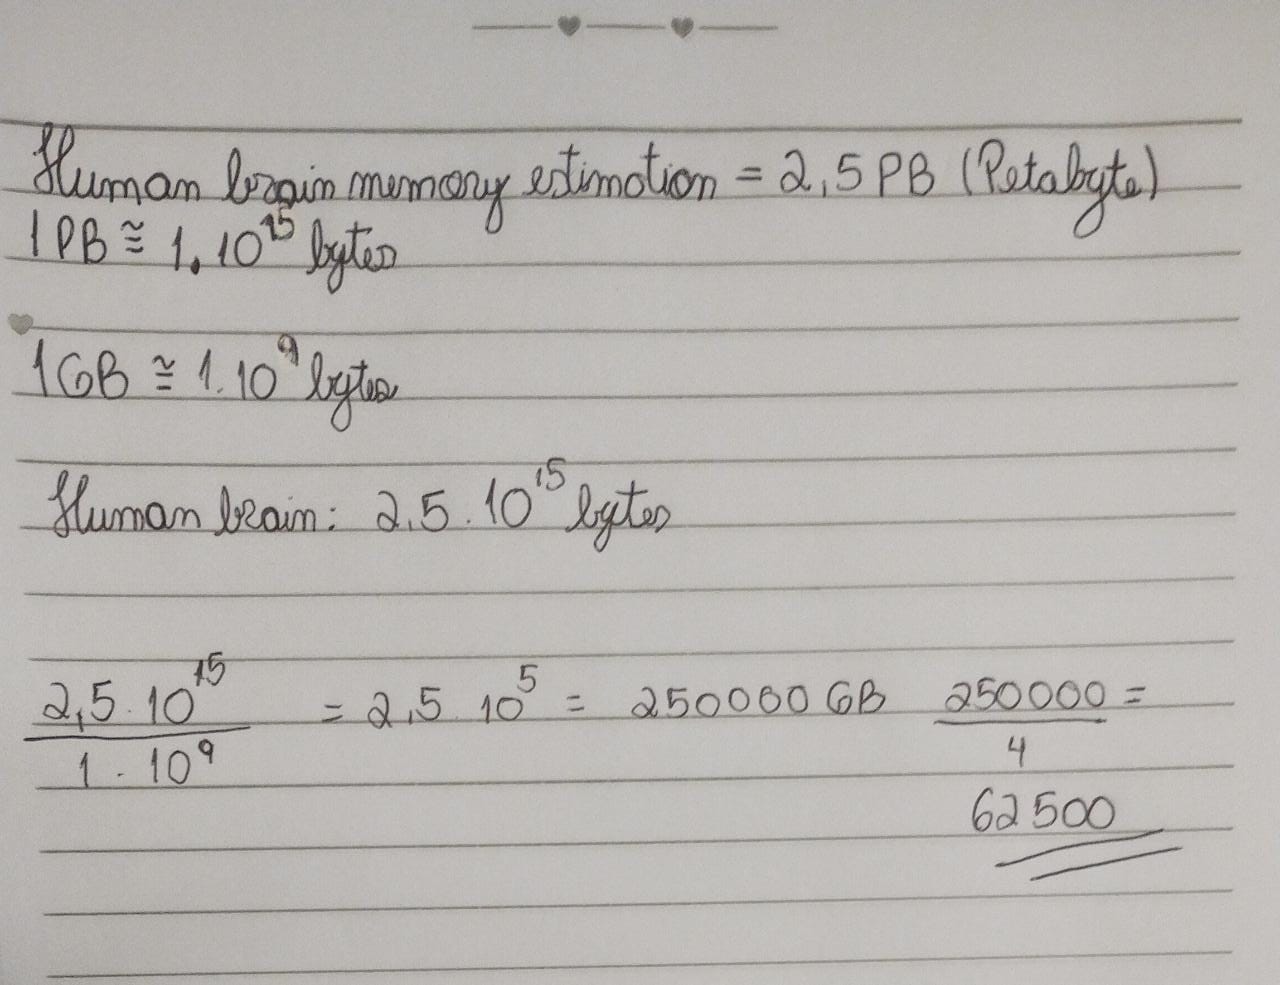 Human brain memory estimation = 2,5 PB (Petabyte)
1 PB ≅ 1.10^15 bytes
1 GB ≅ 1.10^9 bytes
Human brain: 2,5 . 10^15 bytes
2,5 . 10^15 / 1 . 10^9 = 2,5 . 10^5 = 250000 GB 250000 / 4 =
62500